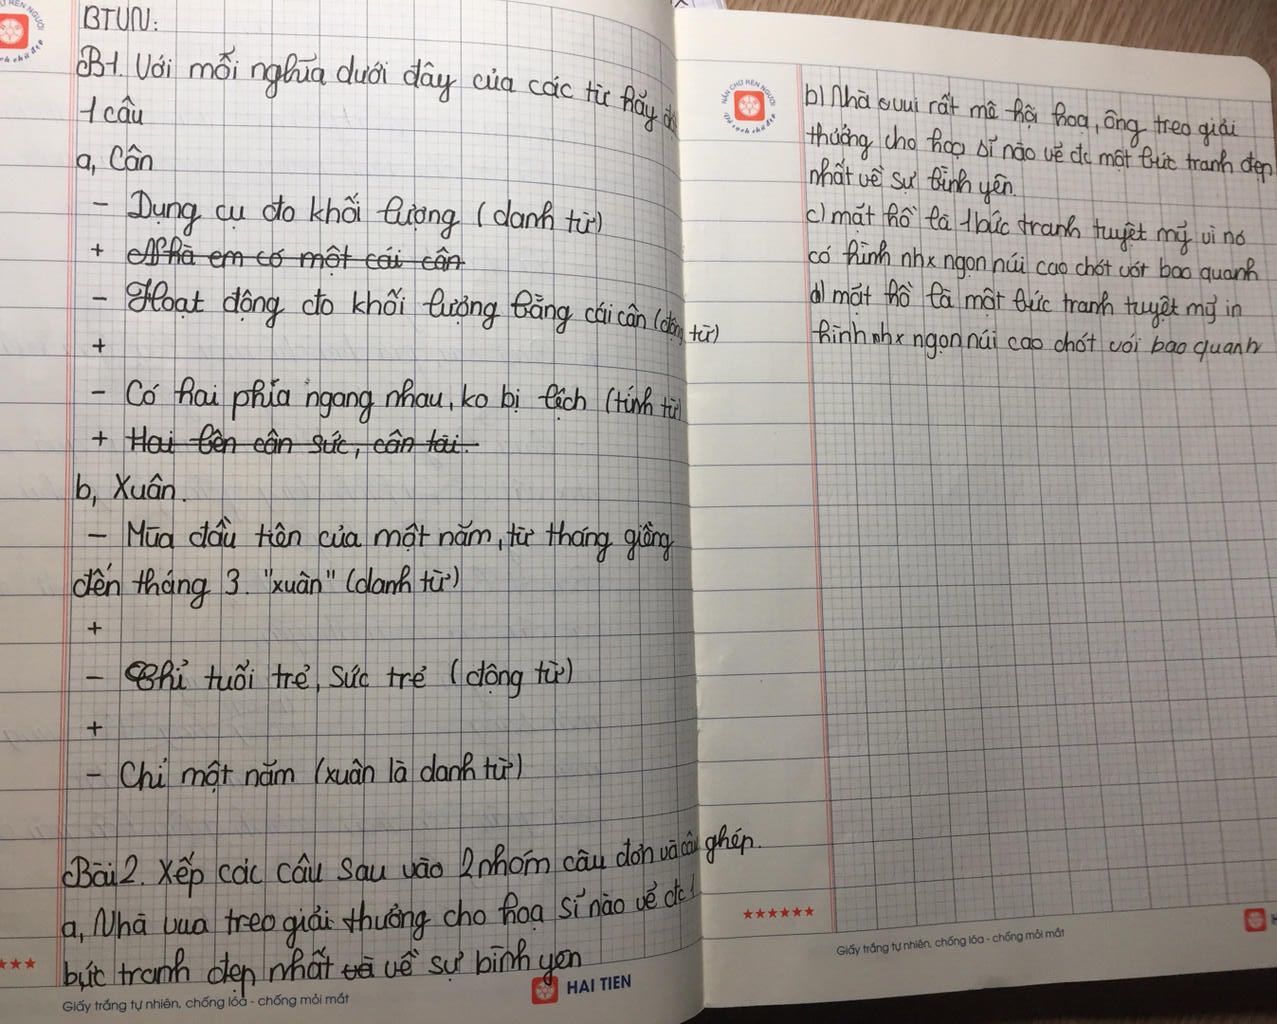 BTUN:
B1. Với mỗi nghĩa dưới đây của các từ hãy
1 câu
a, Cân
- Dụng cụ đo khối lượng (danh từ)
+ Nhà em có một cái cân
- Hoạt động đo khối lượng bằng cái cân (động từ)
+
- Có hai phía ngang nhau, ko bị lệch (tính từ)
+ Hai bên cân sức, cân tài.
b, Xuân.
- Mùa đầu tiên của một năm, từ tháng giêng
đến tháng 3. "xuân" (danh từ)
+
- Chỉ tuổi trẻ, sức trẻ (động từ)
+
- Chỉ một năm (xuân là danh từ)
Bài 2. Xếp các câu sau vào 2 nhóm câu đơn và câu ghép.
a, Nhà vua treo giải thưởng cho hoạ sĩ nào vẽ đc 1
bức tranh đẹp nhất về sự bình yên
Giấy trắng tự nhiên, chống lóa - chống mỏi mắt
HAI TIEN
NẮN CHỮ RÈN NGƯỜI
Vở sạch chữ đẹp
b) Nhà vua rất mê hội hoạ, ông treo giải
thưởng cho hoạ sĩ nào vẽ đc một bức tranh đẹp
nhất về sự bình yên.
c) mặt hồ là 1 bức tranh tuyệt mỹ vì nó
có hình nhx ngọn núi cao chót vót bao quanh
d) mặt hồ là một bức tranh tuyệt mỹ in
hình nhx ngọn núi cao chót vói bao quanh
Giấy trắng tự nhiên, chống lóa - chống mỏi mắt
H